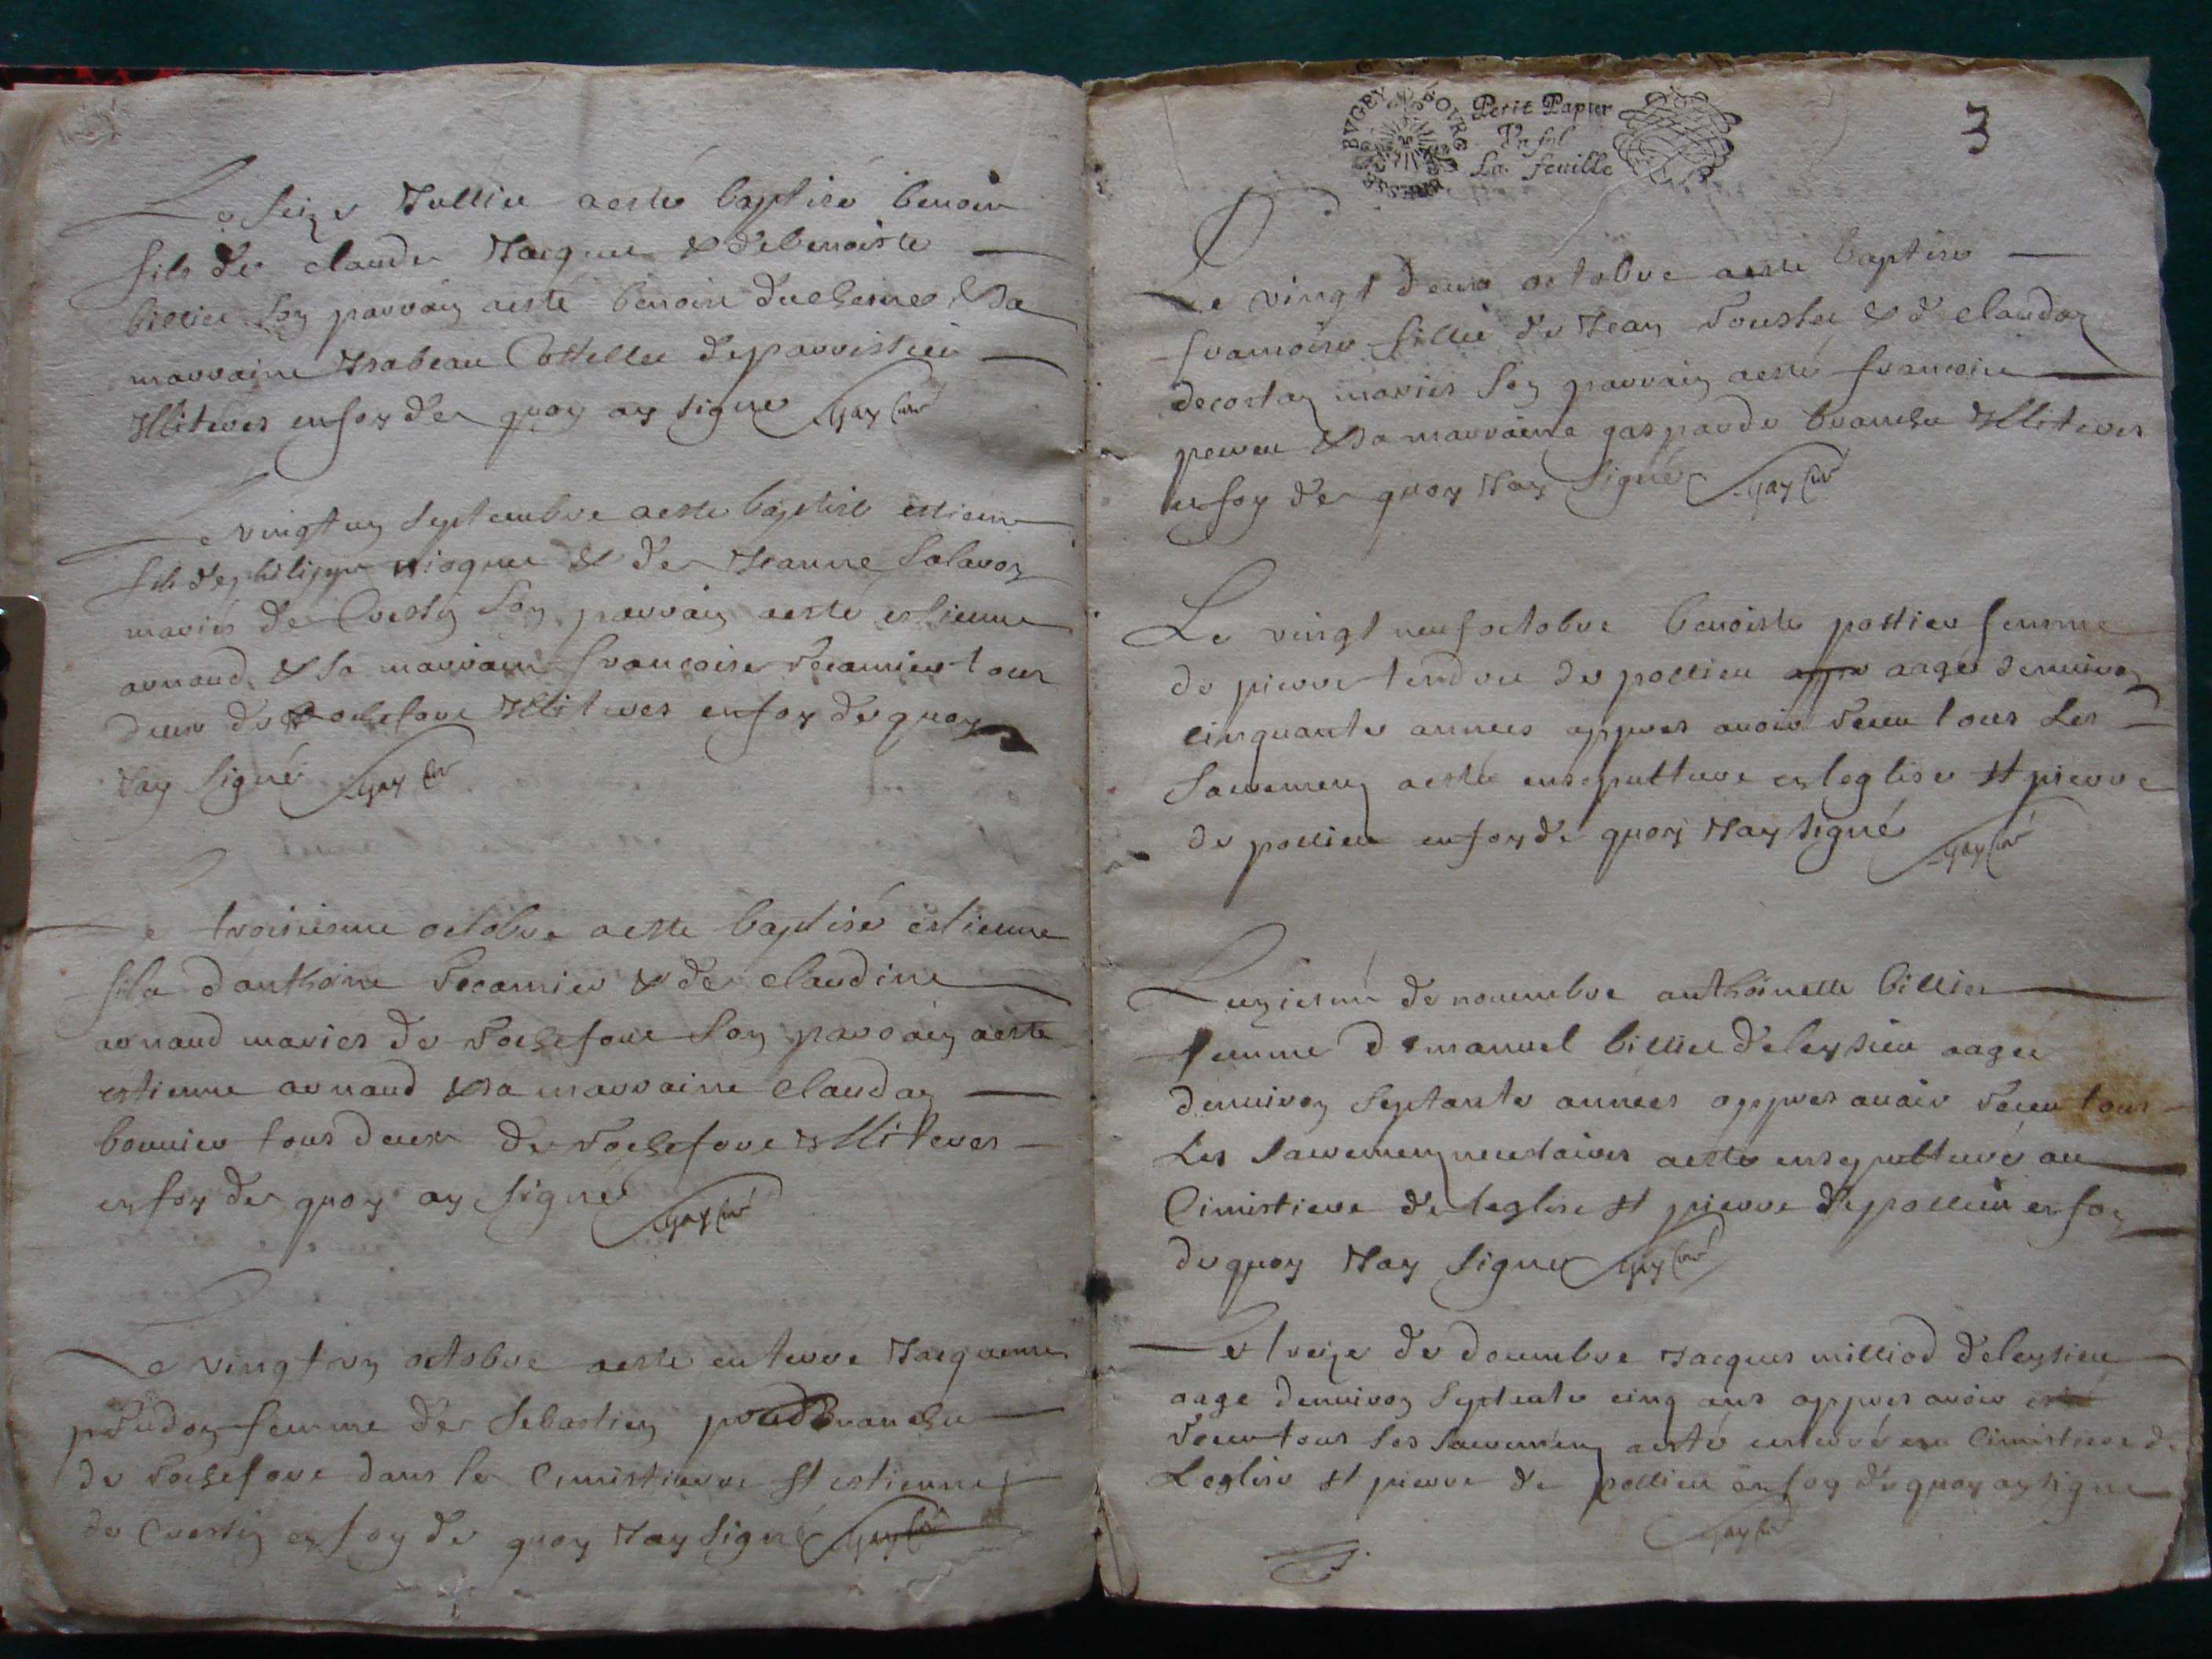 Le seize Jullie aesté baptisé benoir
fils de claude Jacque & de benoiste
billiet son parrain aesté benoir duchesne & sa
marraine Isabeau Cottellee de parvistieu
Illiteres en foy de quoy ay signe Gay Curé
Le vingt un Septembre aeste baptise estienne
fils de philippe & de Jeanne Salavoz
mariés de Crestin son parrain aesté estienne
arnaud & sa marraine francoise Recamier tous
deux de Rochefore Illiteres en foy de quoy
Jay signé Gay Curé
Le troisiesme octobre aeste baptisé estienne
fils danthoine Recamier & de claudine
arnaud maries de Rochefore son parrain aeste
estienne arnaud & sa marraine claudaz
bonnier tous deux de Rochefore Illiteres
en foy de quoy ay signé Gay Curé
Le vingt un octobre aeste enterré Jacquemaz
femme de Sebastien
de Rochefore dans le Cimistierre St estienne
de Crestin en foy de quoy Jay signé Gay Curé
BVGEY BOVRG
Petit Papier
Vn sol
La feuille
3
Le vingt deux octobre aeste baptise
francoise fillie de Jean Rouster & de claudaz
decostaz mariés son parrain aesté francois
& sa marraine gasparde branche Illiteres
en foy de quoy Jay signé Gay Curé
Le vingt neuf octobre benoiste postier femme
de pierre tendret de pollieu aagé denviron
cinquante annees appres avoir Receu tous les
Sacremens aesté ensepulturé en leglise St pierre
de pollieu en foy de quoy Jay signé Gay Curé
Lunziesme de novembre anthoinette billiet
femme demanuel billiet de leysieu aagee
denviron septante annees appres avoir Receu tous
Les Sacremens necessaires aesté ensepulturé au
Cimistiere de leglise St pierre de pollieu en foy
de quoy Jay signe Gay Curé
Le treize de decembre Jacques milliod de leysieu
aage denviron septante cinq ans appres avoir esté
Receu tous les Sacremens aesté enterré au Cimistiere de
Leglise St pierre de pollieu en foy de quoy ay signe
Gay Curé